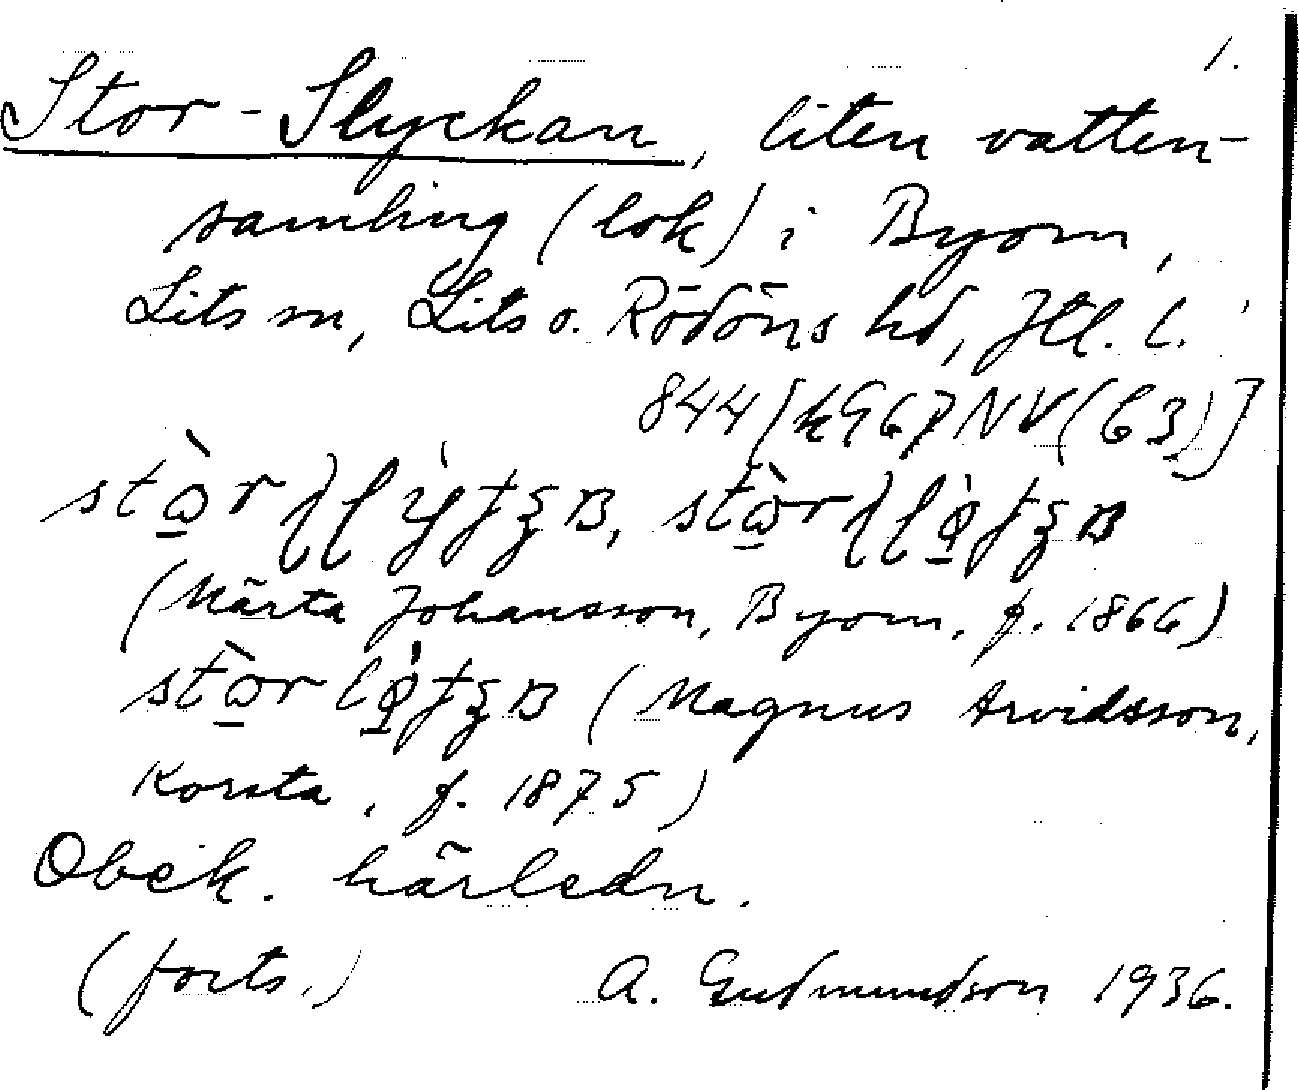 1.
Stor-Slyckan, liten vatten-
samling (lok) i Byom,
Lits sn, Lits o. Rödöns hd, Jtl. l.
844 [k967NV(63)]
(Märta Johansson, Byom, f. 1866)
(Magnus Arvidsson,
Korsta, f. 1875)
Obek. härledn.
(forts.) A. Gudmundson 1936.